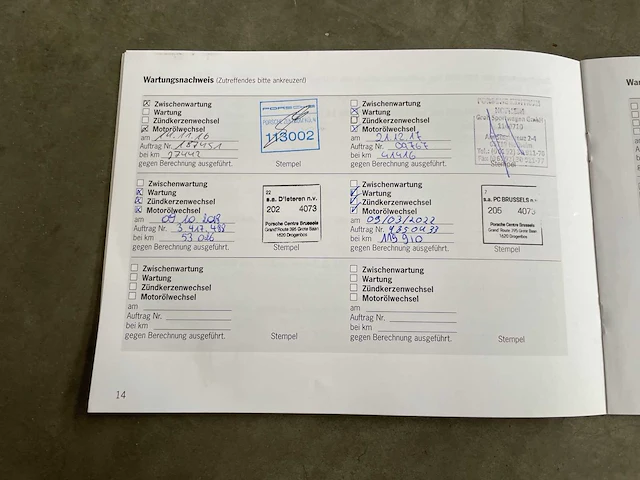 Wartungsnachweis (Zutreffendes bitte ankreuzen!)
War
Zwischenwartung
Wartung
Zündkerzenwechsel
Motorölwechsel
am 11.16
Auftrag Nr. 187451
bei km 27442
gegen Berechnung ausgeführt.
PORSCHE
113002
Stempel
Zwischenwartung
Wartung
Zündkerzenwechsel
Motorölwechsel
am 21.12.17
Auftrag Nr. 00767
bei km 41416
gegen Berechnung ausgeführt.
Stempel
Zwischenwartung
Wartung
Zündkerzenwechsel
Motorölwechsel
am 09 10 2019
Auftrag Nr. 3 417 488
bei km 53 026
gegen Berechnung ausgeführt.
22
s.a. D'Ieteren n.v.
202 4073
Porsche Centre Brussels
Grand'Route 395 Grote Baan
1620 Drogenbos
Stempel
Zwischenwartung
Wartung
Zündkerzenwechsel
Motorölwechsel
am 09/03/2022
Auftrag Nr. 9350433
bei km 119 910
gegen Berechnung ausgeführt.
s.a. PC BRUSSELS n.v.
205 4073
Porsche Centre Brussels
Grand'Route 395 Grote Baan
1620 Drogenbos
Stempel
Zwischenwartung
Wartung
Zündkerzenwechsel
Motorölwechsel
am
Auftrag Nr.
bei km
gegen Berechnung ausgeführt.
Stempel
Zwischenwartung
Wartung
Zündkerzenwechsel
Motorölwechsel
am
Auftrag Nr.
bei km
gegen Berechnung ausgeführt.
Stempel
14